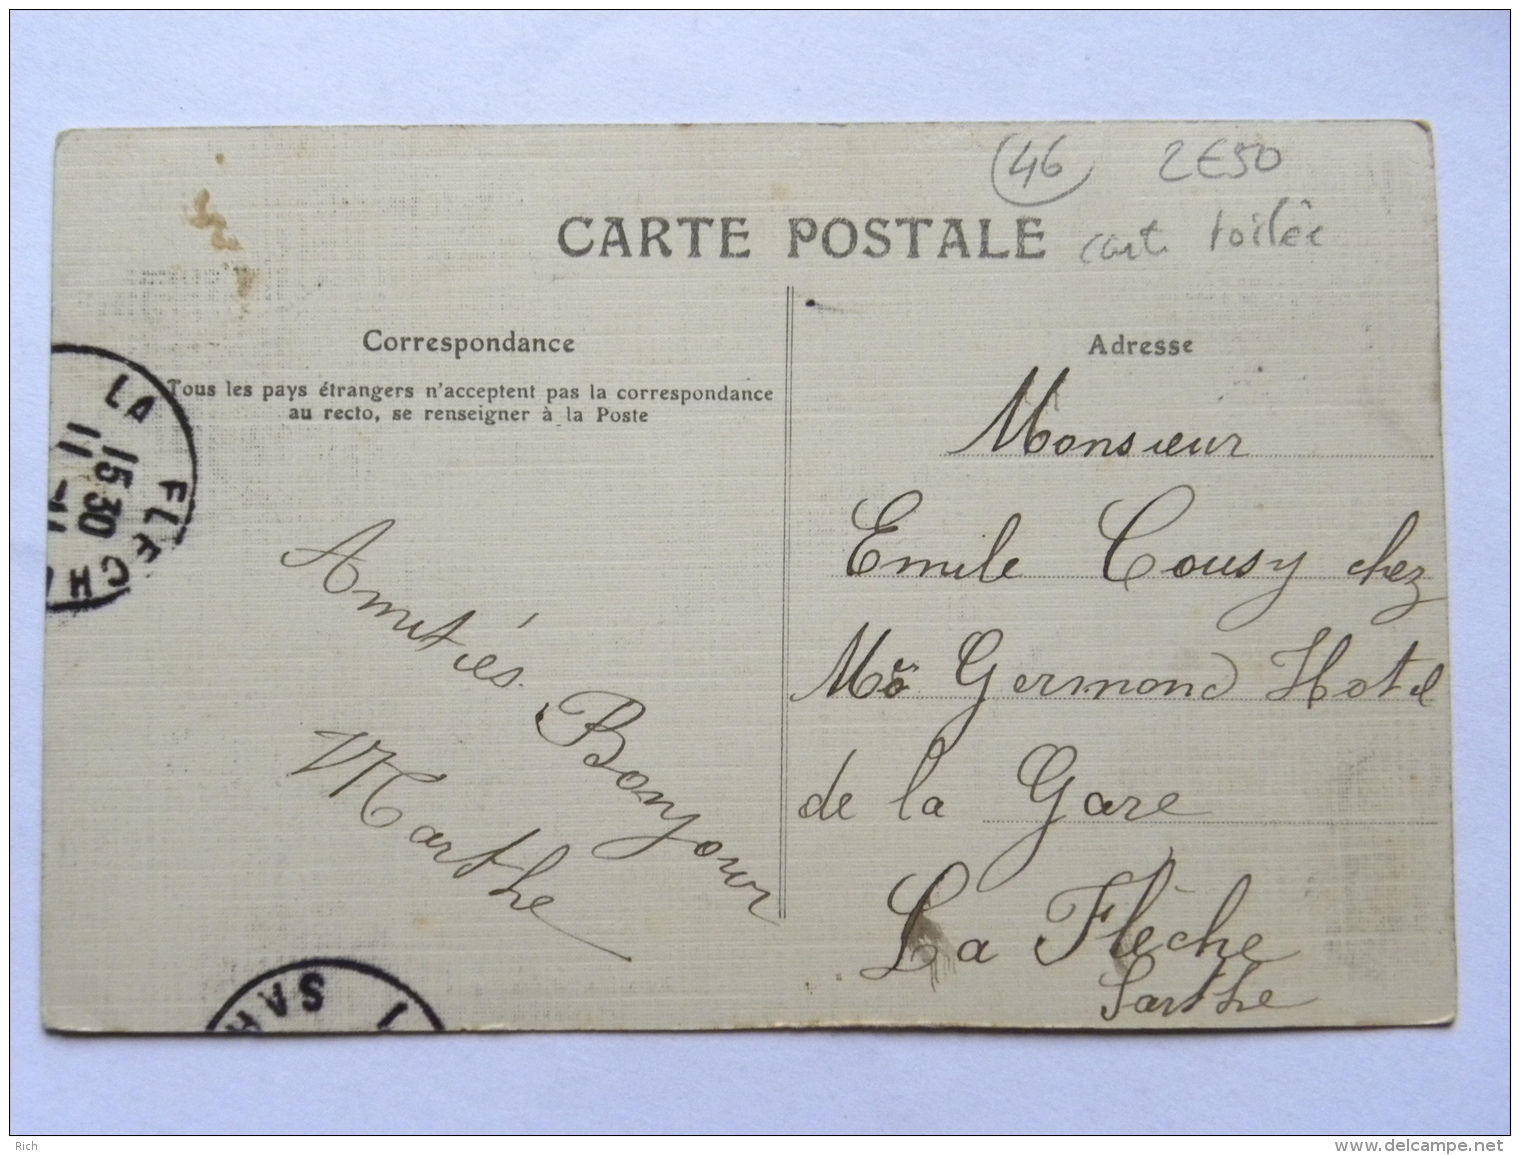 46 2€50
CARTE POSTALE carte toilée
Correspondance
Tous les pays étrangers n'acceptent pas la correspondance
au recto, se renseigner à la Poste
LA FLECH
15 30
11
Amitiés. Bonjour
Marthe
SAR
Adresse
Monsieur
Emile Cousy chez
Mr Germond Hotel
de la Gare
La Flèche
Sarthe
Rich
www.delcampe.net